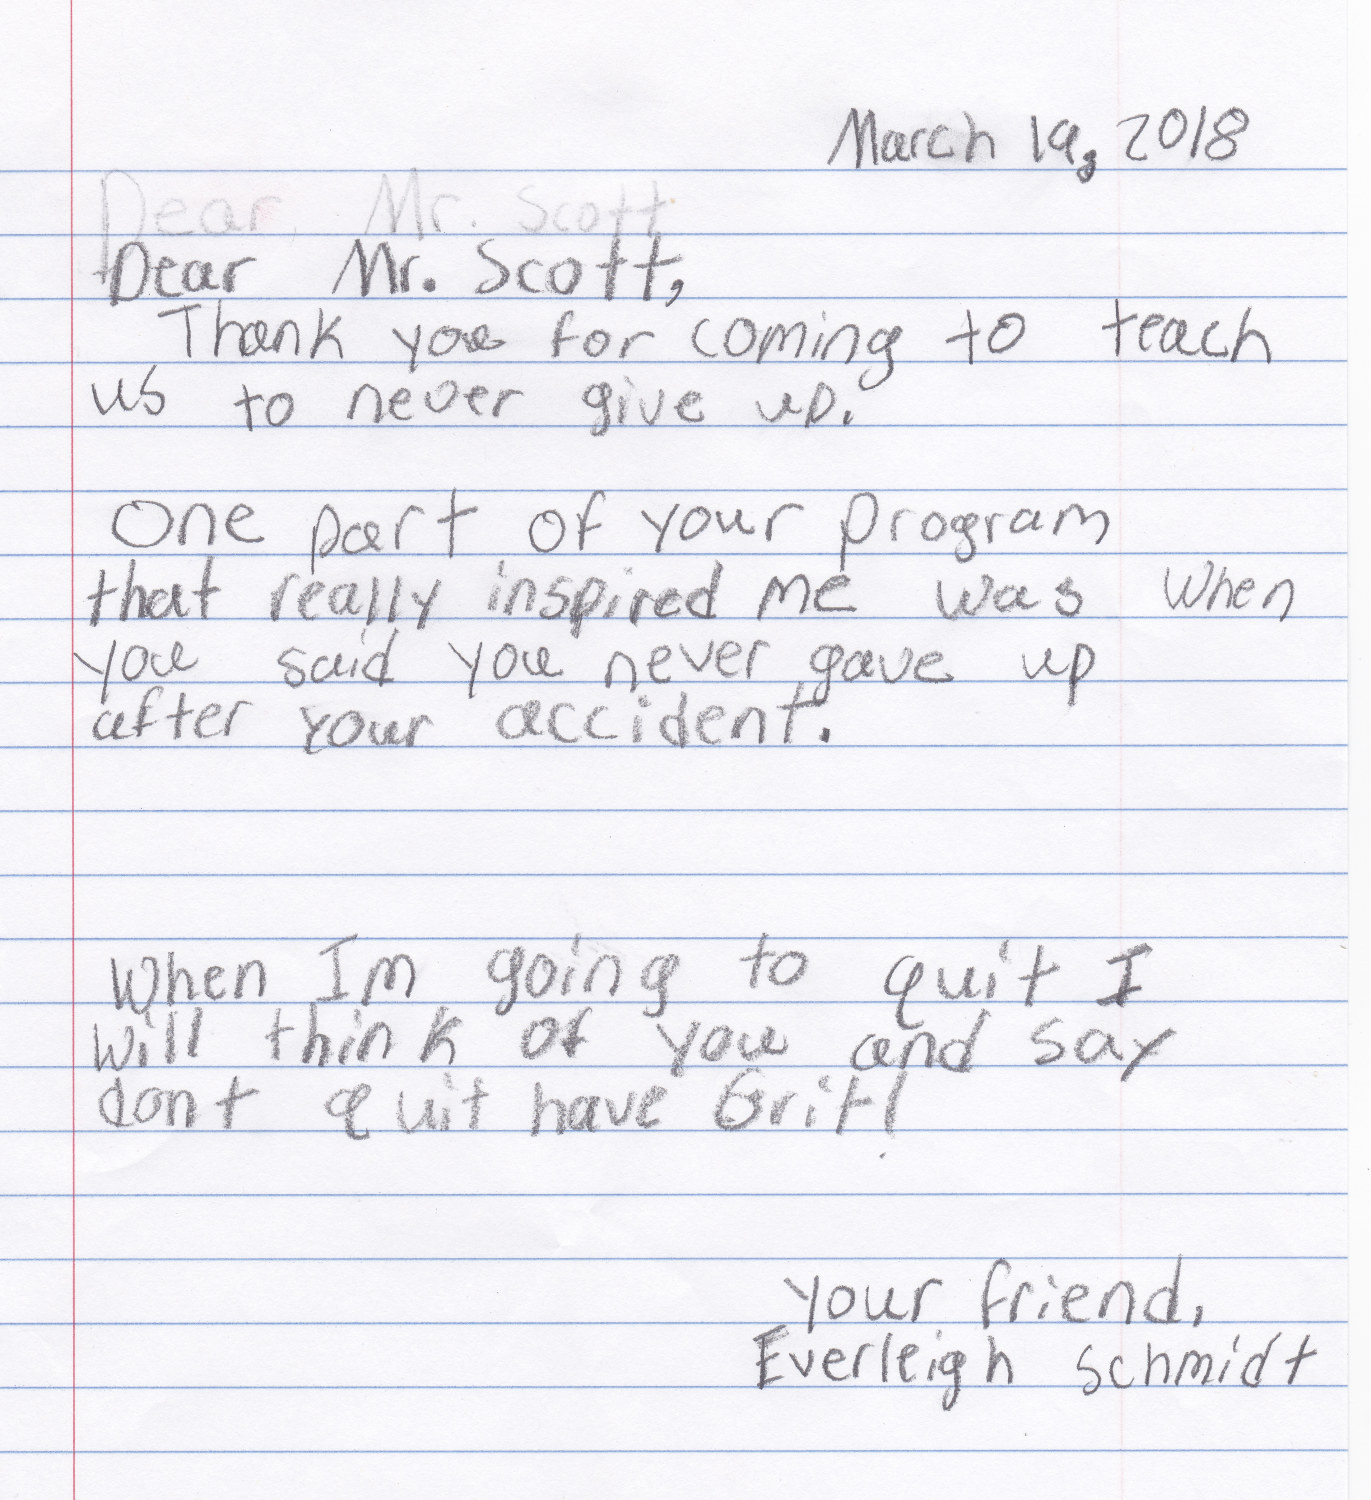 March 19, 2018
Dear, Mr. Scott
Dear Mr. Scott,
Thank you for coming to teach
us to never give up.
One part of your program
that really inspired me was when
you said you never gave up
after your accident.
When Im going to quit I
will think of you and say
dont quit have Grit!
your friend,
Everleigh Schmidt